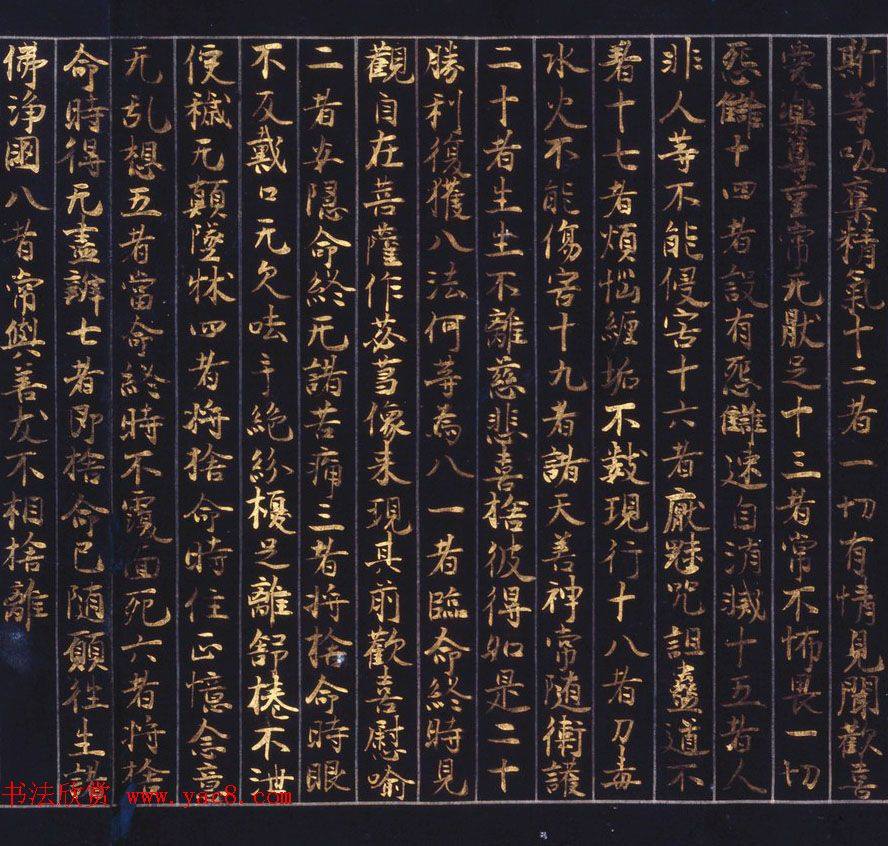 斯等吸棄精氣十二者一切有情見聞歡喜
愛樂尊重常无猒足十三者常不怖畏一切
惌讎十四者設有惌讎速自消滅十五者人
非人等不能侵害十六者厭魅咒詛蠱道不
著十七者煩惱纏垢不數現行十八者刀毒
水火不能傷害十九者諸天善神常隨衛護
二十者生生不離慈悲喜捨彼得如是二十
勝利復獲八法何等為八一者臨命終時見
觀自在菩薩作苾蒭像來現其前歡喜慰喻
二者安隱命終无諸苦痛三者將捨命時眼
不反戴口无欠呿手絕紛擾足離舒捲不泄
便穢无顛墜牀四者將捨命時住正憶念意
无乱想五者當命終時不覆面死六者將捨
命時得无盡辯七者即捨命已隨願往生諸
佛淨國八者常與善友不相捨離
书法欣赏 www.yac8.com